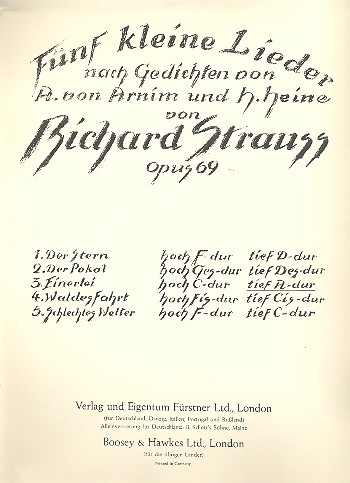 Fünf kleine Lieder
nach Gedichten von
A. von Arnim und H. Heine
von
Richard Strauss
Opus 69
1. Der Stern hoch F-dur tief D-dur
2. Der Pokal hoch Ges-dur tief Des-dur
3. Einerlei hoch C-dur tief A-dur
4. Waldesfahrt hoch Fis-dur tief Cis-dur
5. Schlechtes Wetter hoch F-dur tief C-dur
Verlag und Eigentum Fürstner Ltd., London
(für Deutschland, Danzig, Italien, Portugal und Rußland)
Alleinvertretung für Deutschland: B. Schott's Söhne, Mainz
Boosey & Hawkes Ltd., London
(für die übrigen Länder)
Printed in Germany